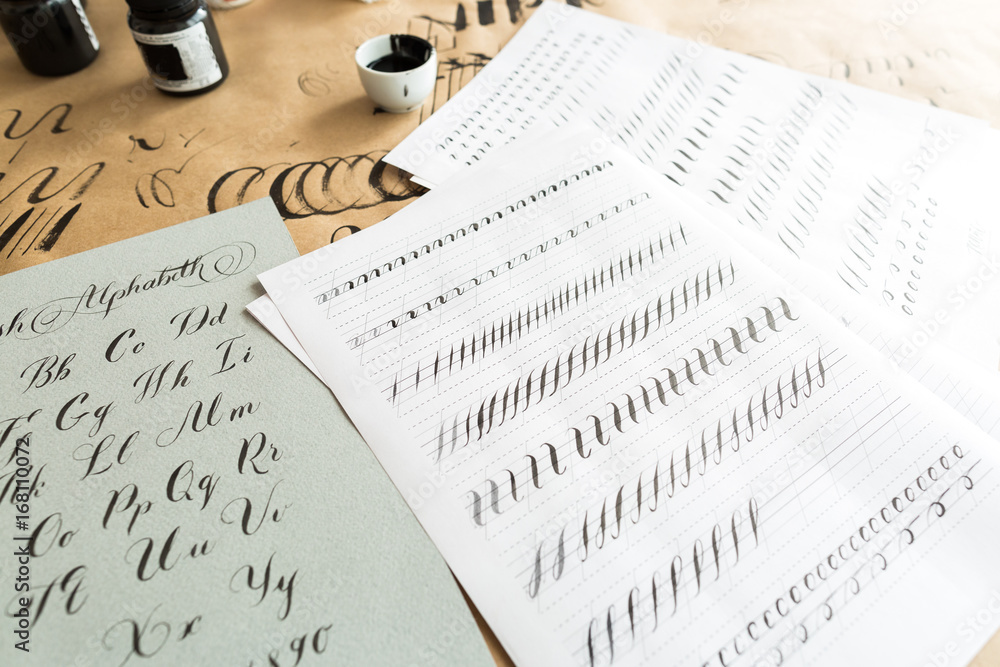 sh Alphabeth
Bb Cc Dd
Gg Hh Ii
k Ll Mm
Oo Pp Qq Rr
Tt Uu Vv
Xx Yy
890
Adobe Stock | #168110072